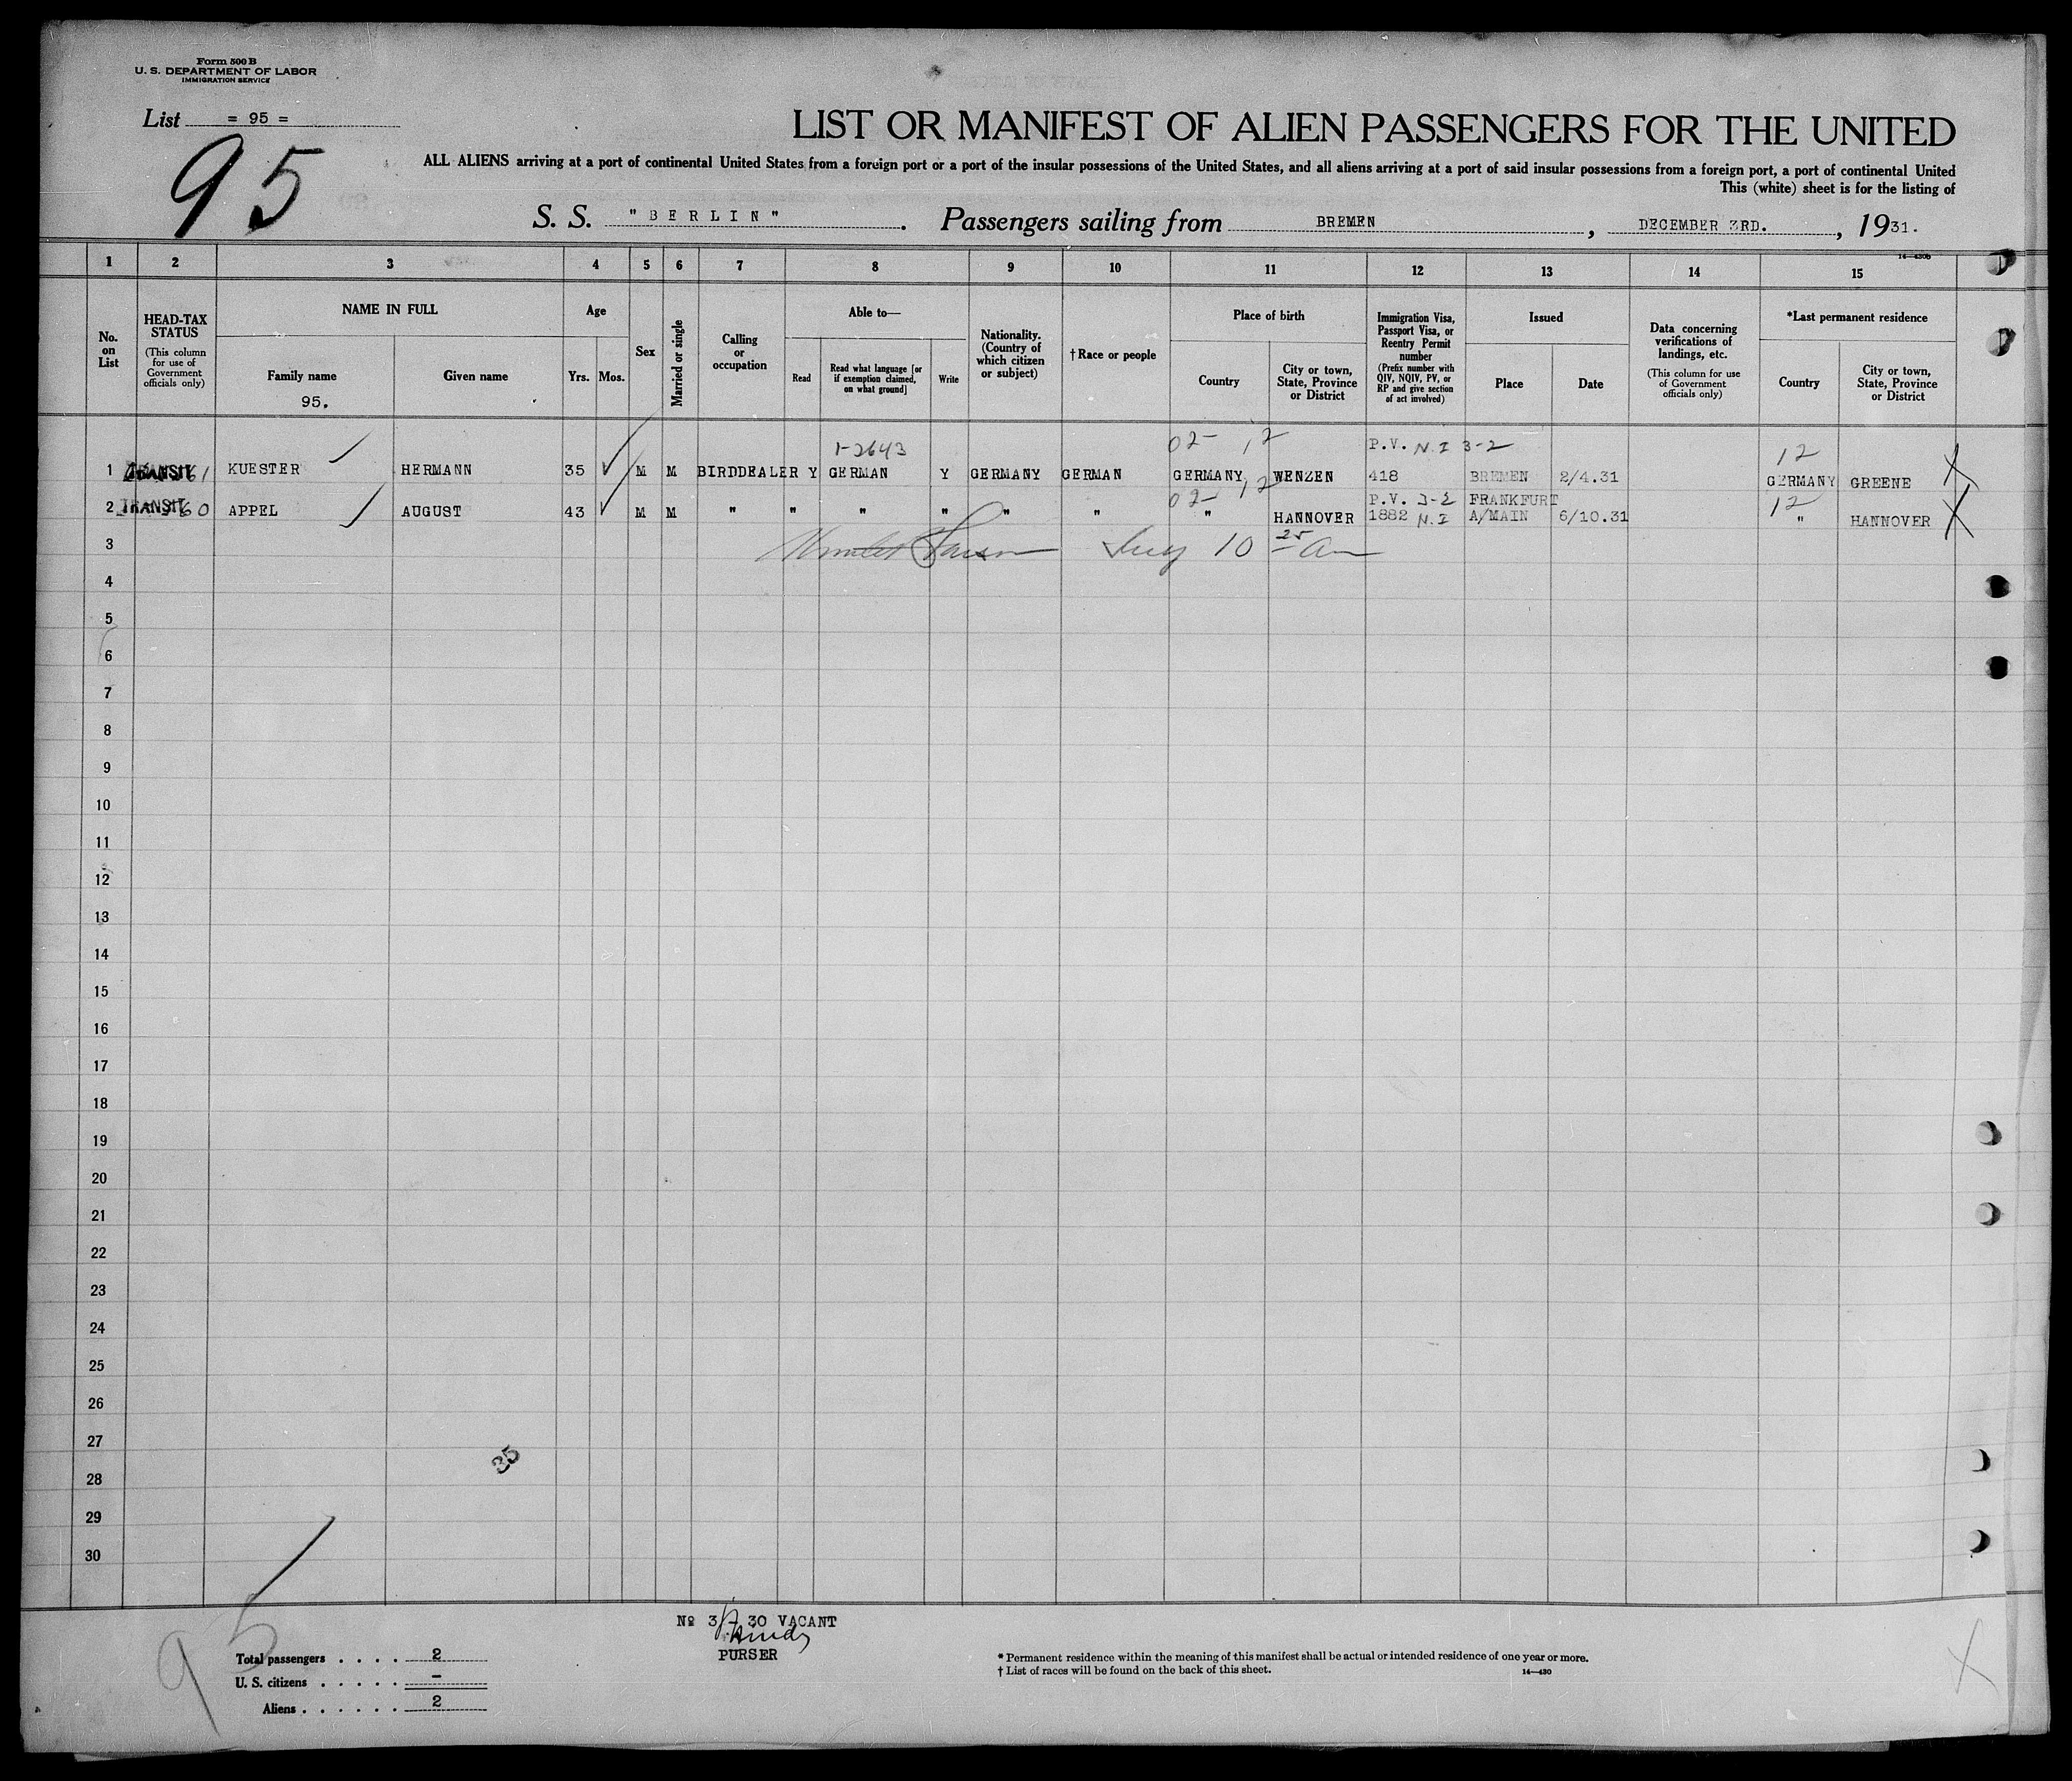 Form 500 B
U. S. DEPARTMENT OF LABOR
IMMIGRATION SERVICE
List = 95 =
95
LIST OR MANIFEST OF ALIEN PASSENGERS FOR THE UNITED
ALL ALIENS arriving at a port of continental United States from a foreign port or a port of the insular possessions of the United States, and all aliens arriving at a port of said insular possessions from a foreign port, a port of continental United
This (white) sheet is for the listing of
S. S. "BERLIN". Passengers sailing from BREMEN, DECEMBER 3RD., 1931.
14—430b
1 2 3 4 5 6 7 8 9 10 11 12 13 14 15
No. on List
HEAD-TAX STATUS
(This column for use of Government officials only)
NAME IN FULL
Family name
95.
Given name
Age
Yrs. Mos.
Sex
Married or single
Calling or occupation
Able to—
Read
Read what language [or if exemption claimed, on what ground]
Write
Nationality. (Country of which citizen or subject)
† Race or people
Place of birth
Country
City or town, State, Province or District
Immigration Visa, Passport Visa, or Reentry Permit number
(Prefix number with QIV, NQIV, PV, or RP and give section of act involved)
Issued
Place
Date
Data concerning verifications of landings, etc.
(This column for use of Government officials only)
*Last permanent residence
Country
City or town, State, Province or District
1-2643 02- 12 P.V. N.I 3-2 12
1 TRANSIT 61 KUESTER HERMANN 35 M M BIRDDEALER Y GERMAN Y GERMANY GERMAN GERMANY WENZEN 418 BREMEN 2/4.31 GERMANY GREENE
02- 12 P.V. 3-2 FRANKFURT 12
2 TRANSIT 60 APPEL AUGUST 43 M M " " " " " " " HANNOVER 1882 N.I A/MAIN 6/10.31 " HANNOVER
3 10 25 am
4
5
6
7
8
9
10
11
12
13
14
15
16
17
18
19
20
21
22
23
24
25
26
27
35
28
29
30
95
№ 3/ 30 VACANT
PURSER
Total passengers . . . . 2
U. S. citizens . . . . . –
Aliens . . . . . . 2
* Permanent residence within the meaning of this manifest shall be actual or intended residence of one year or more.
† List of races will be found on the back of this sheet. 14—430